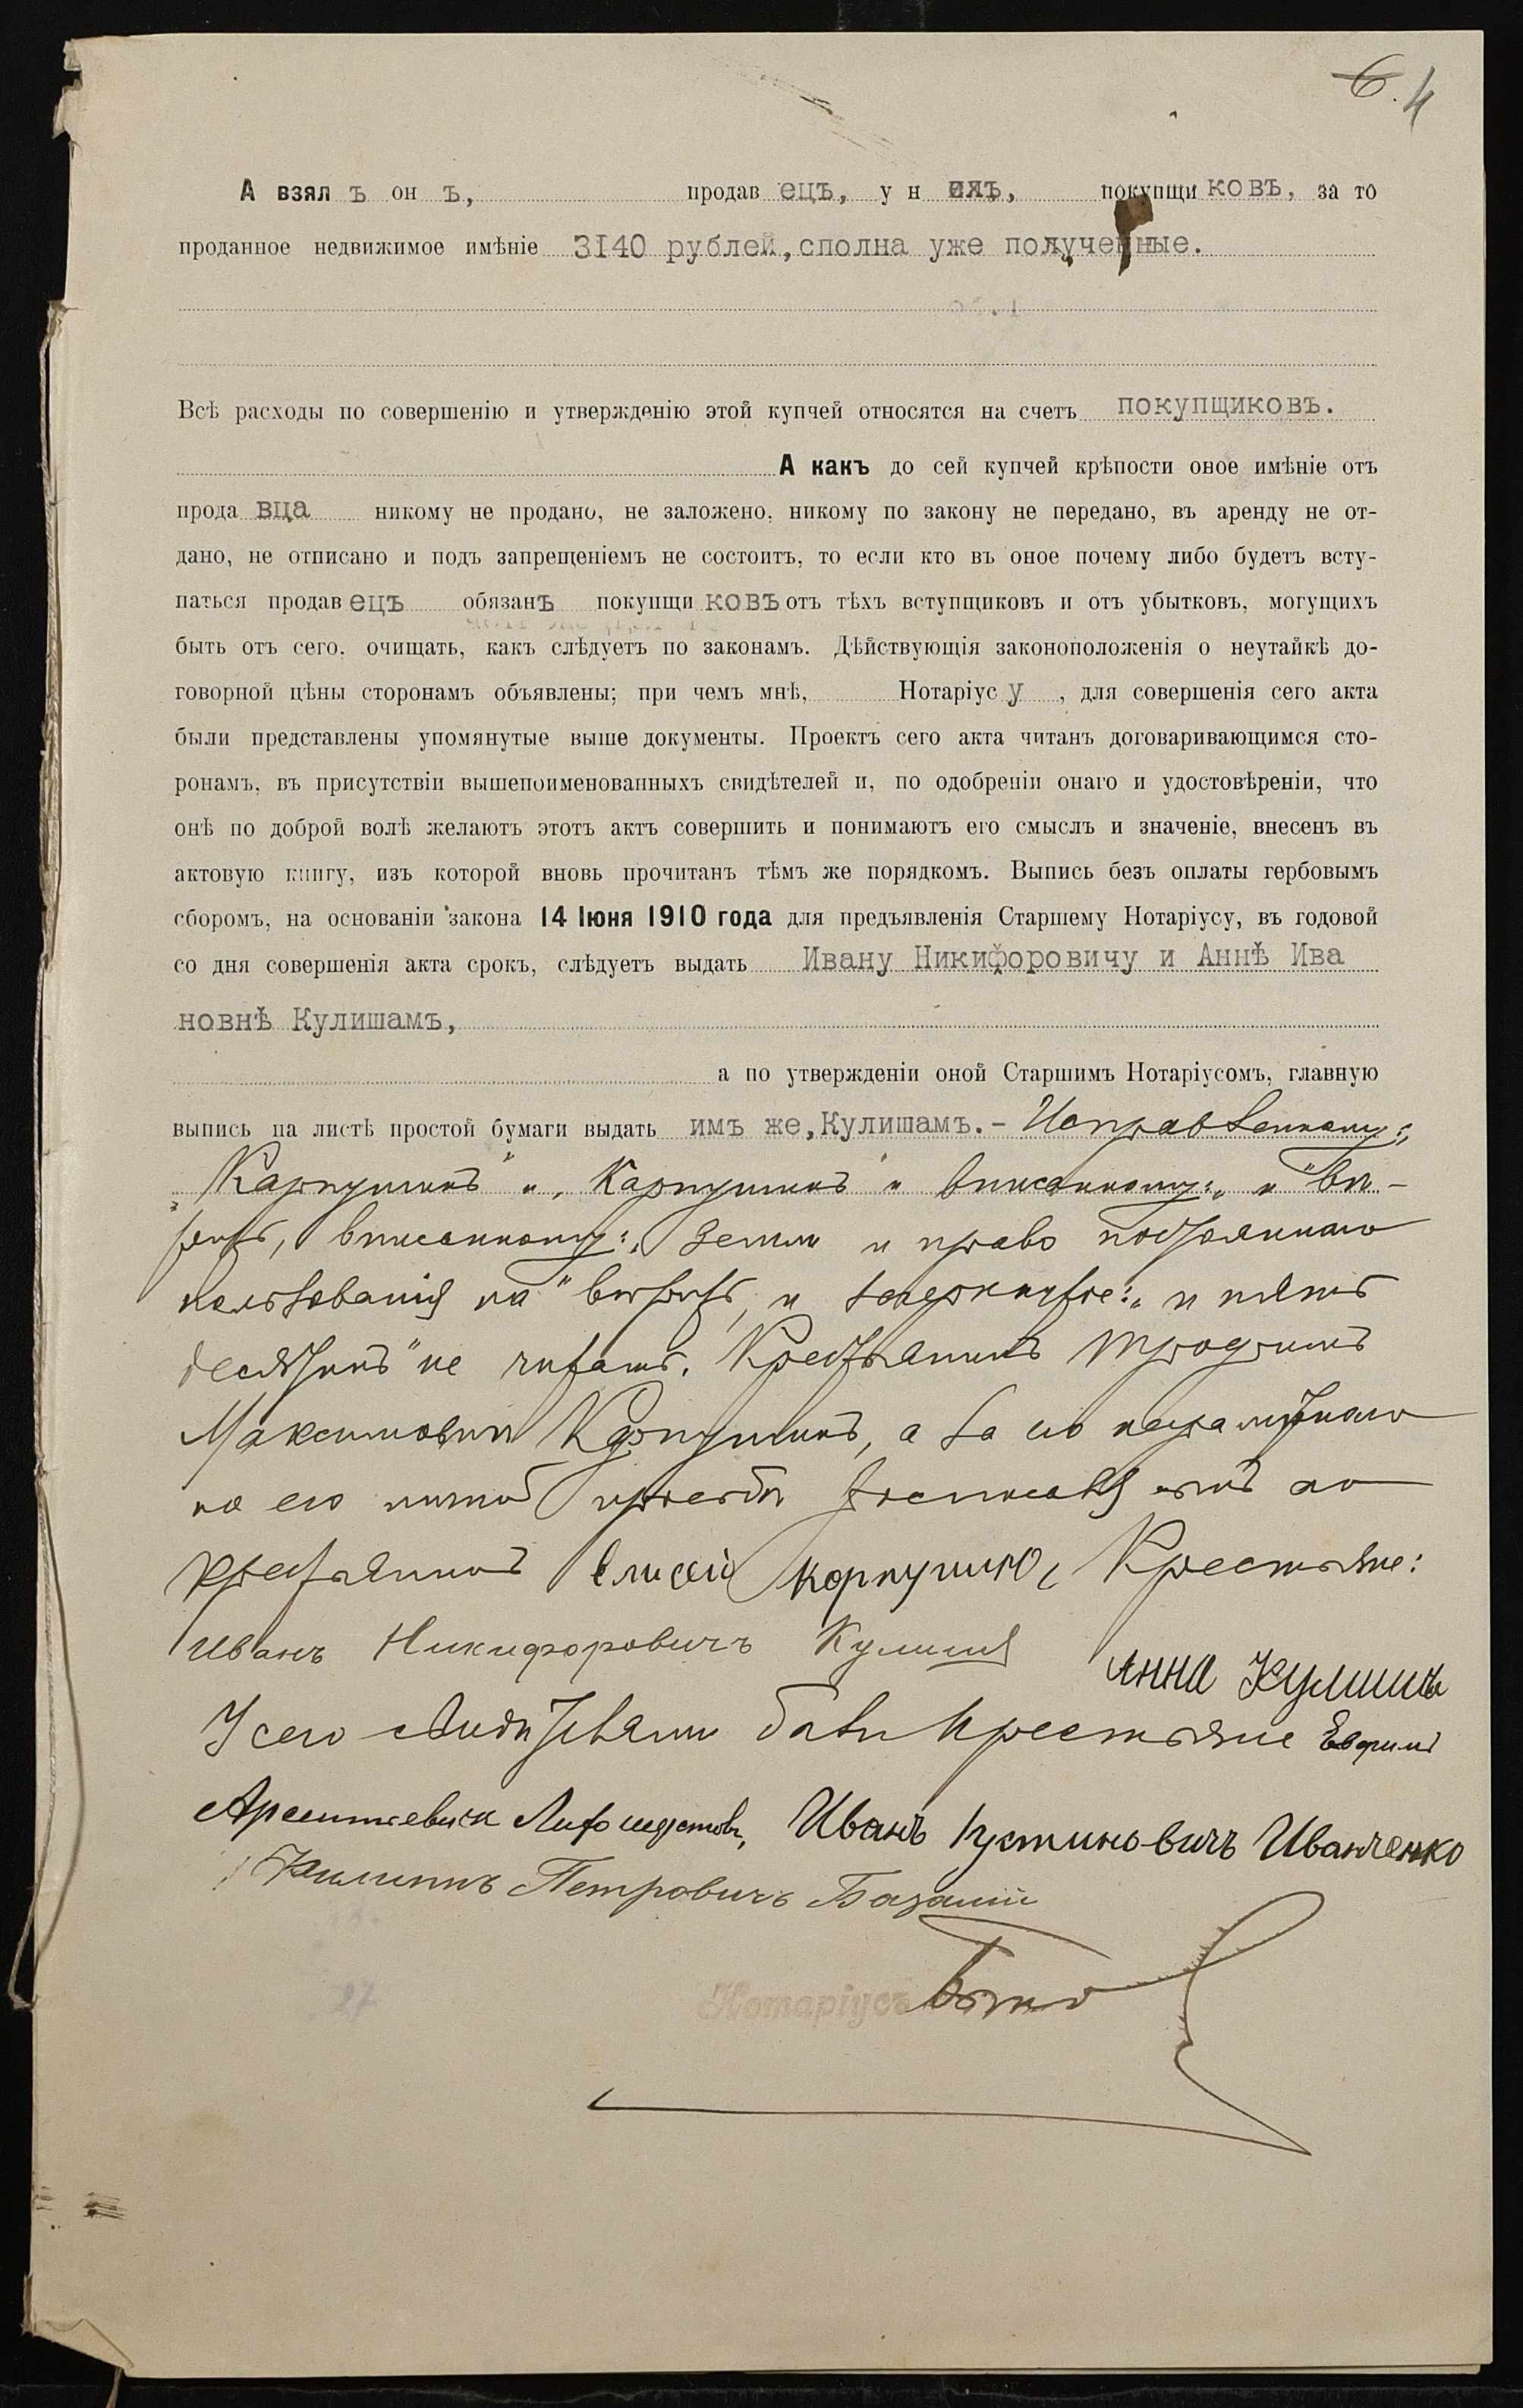 6. 4
А взял ъ он ъ, продав ецъ, у н ихъ, покупщи ковъ, за то
проданное недвижимое имѣніе 3I40 рублей, сполна уже полученные.
Всѣ расходы по совершенію и утвержденію этой купчей относятся на счетъ покупщиковъ.
А какъ до сей купчей крѣпости оное имѣніе отъ
прода вца никому не продано, не заложено, никому по закону не передано, въ аренду не от-
дано, не отписано и подъ запрещеніемъ не состоитъ, то если кто въ оное почему либо будетъ всту-
паться продав ецъ обязанъ покупщи ковъ отъ тѣхъ вступщиковъ и отъ убытковъ, могущихъ
быть отъ сего, очищать, какъ слѣдуетъ по законамъ. Дѣйствующія законоположенія о неутайкѣ до-
говорной цѣны сторонамъ объявлены; при чемъ мнѣ, Нотаріус у , для совершенія сего акта
были представлены упомянутые выше документы. Проектъ сего акта читанъ договаривающимся сто-
ронамъ, въ присутствіи вышепоименованныхъ свидѣтелей и, по одобреніи онаго и удостовѣреніи, что
онѣ по доброй волѣ желаютъ этотъ актъ совершить и понимаютъ его смыслъ и значеніе, внесенъ въ
актовую книгу, изъ которой вновь прочитанъ тѣмъ же порядкомъ. Выпись безъ оплаты гербовымъ
сборомъ, на основаніи закона 14 Іюня 1910 года для предъявленія Старшему Нотаріусу, въ годовой
со дня совершенія акта срокъ, слѣдуетъ выдать Ивану Никифоровичу и Аннѣ Ива
новнѣ Кулишамъ,
а по утвержденіи оной Старшимъ Нотаріусомъ, главную
выпись на листѣ простой бумаги выдать имъ же, Кулишамъ.- Исправленному:
"Карпушинъ" и "Карпушинъ" вписанному: "и" вѣ-
рить, вписанному: "земли и право постояннаго
пользованія на" вѣрить, и зачеркнутое: "и пять
десятинъ" не читать. Крестьянинъ Трофимъ
Максимовичъ Карпушинъ, а за его неграмотнаго
по его личной просьбѣ росписался
крестьянинъ Елисей Карпушин, Крестьяне:
Иванъ Никифоровичъ Кулишъ Анна Кулишъ
У сего свидѣтелями были крестьяне Евфимъ
Арсентьевичъ Иванъ Иустиновичъ Иванченко
Филиппъ Петровичъ Базалій
Нотаріусъ
27